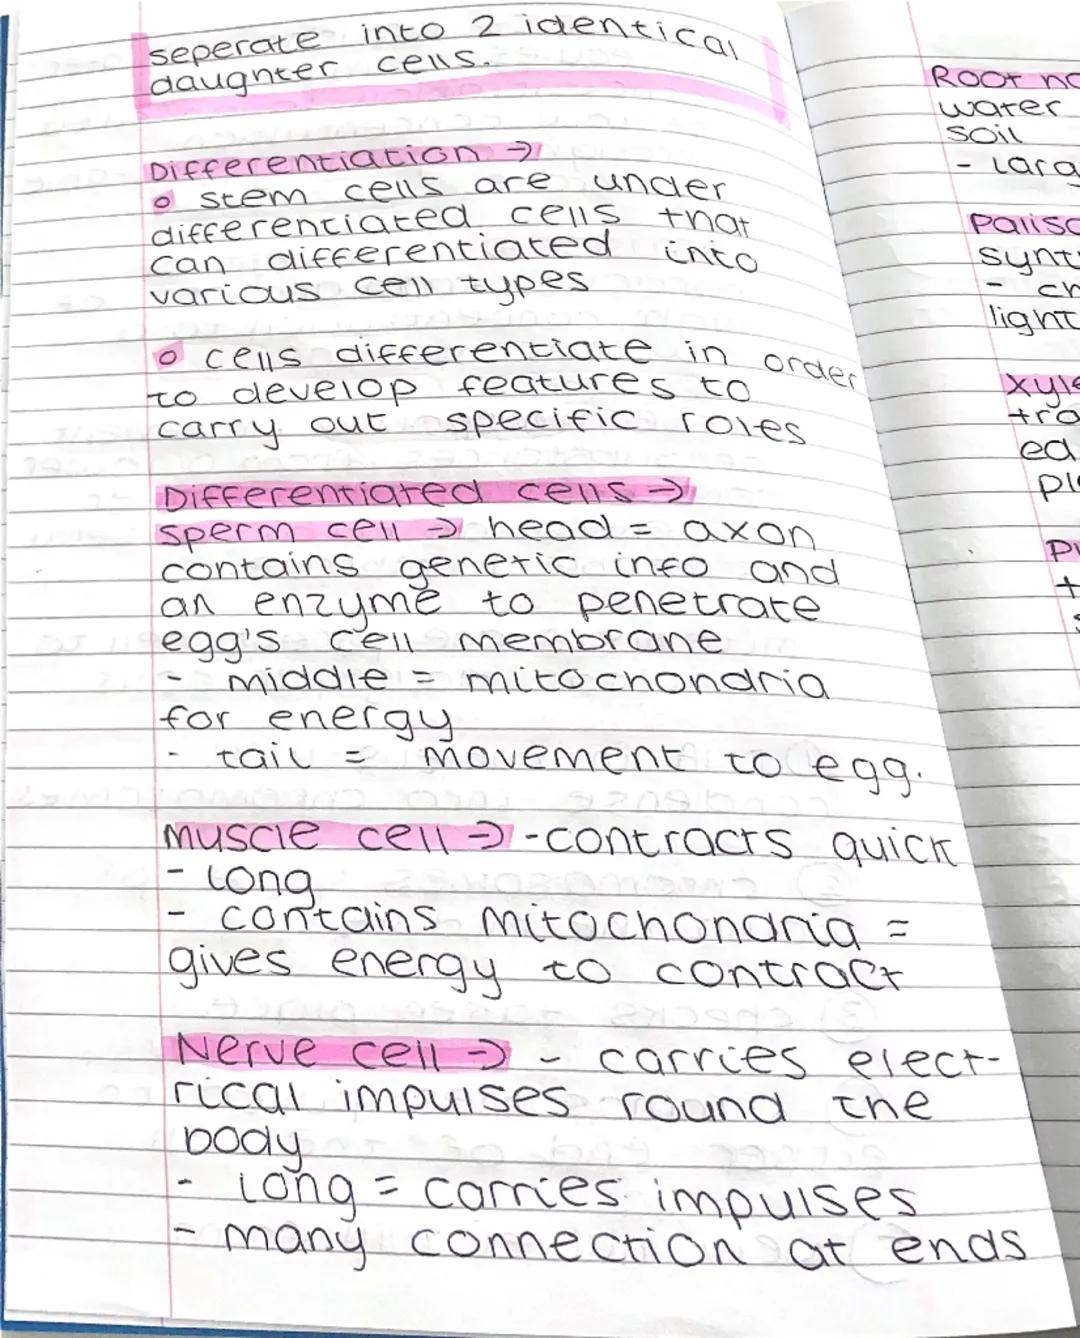 seperate into 2 identical
daughter cells.
Differentiation →
o stem cells are under
differentiated cells that
can differentiated into
various cell types
o cells differentiate in order
to develop features to
carry out specific roles
Differentiated cells →
sperm cell → head = axon
contains genetic info and
an enzyme to penetrate
egg's cell membrane
- middle = mitochondria
for energy
- tail = movement to egg.
Muscle cell → - contracts quick
- long
- contains mitochondria =
gives energy to contract
Nerve cell → - carries elect-
rical impulses round the
body
- long = carries impulses
- many connection at ends
Root
water
soil
-
light